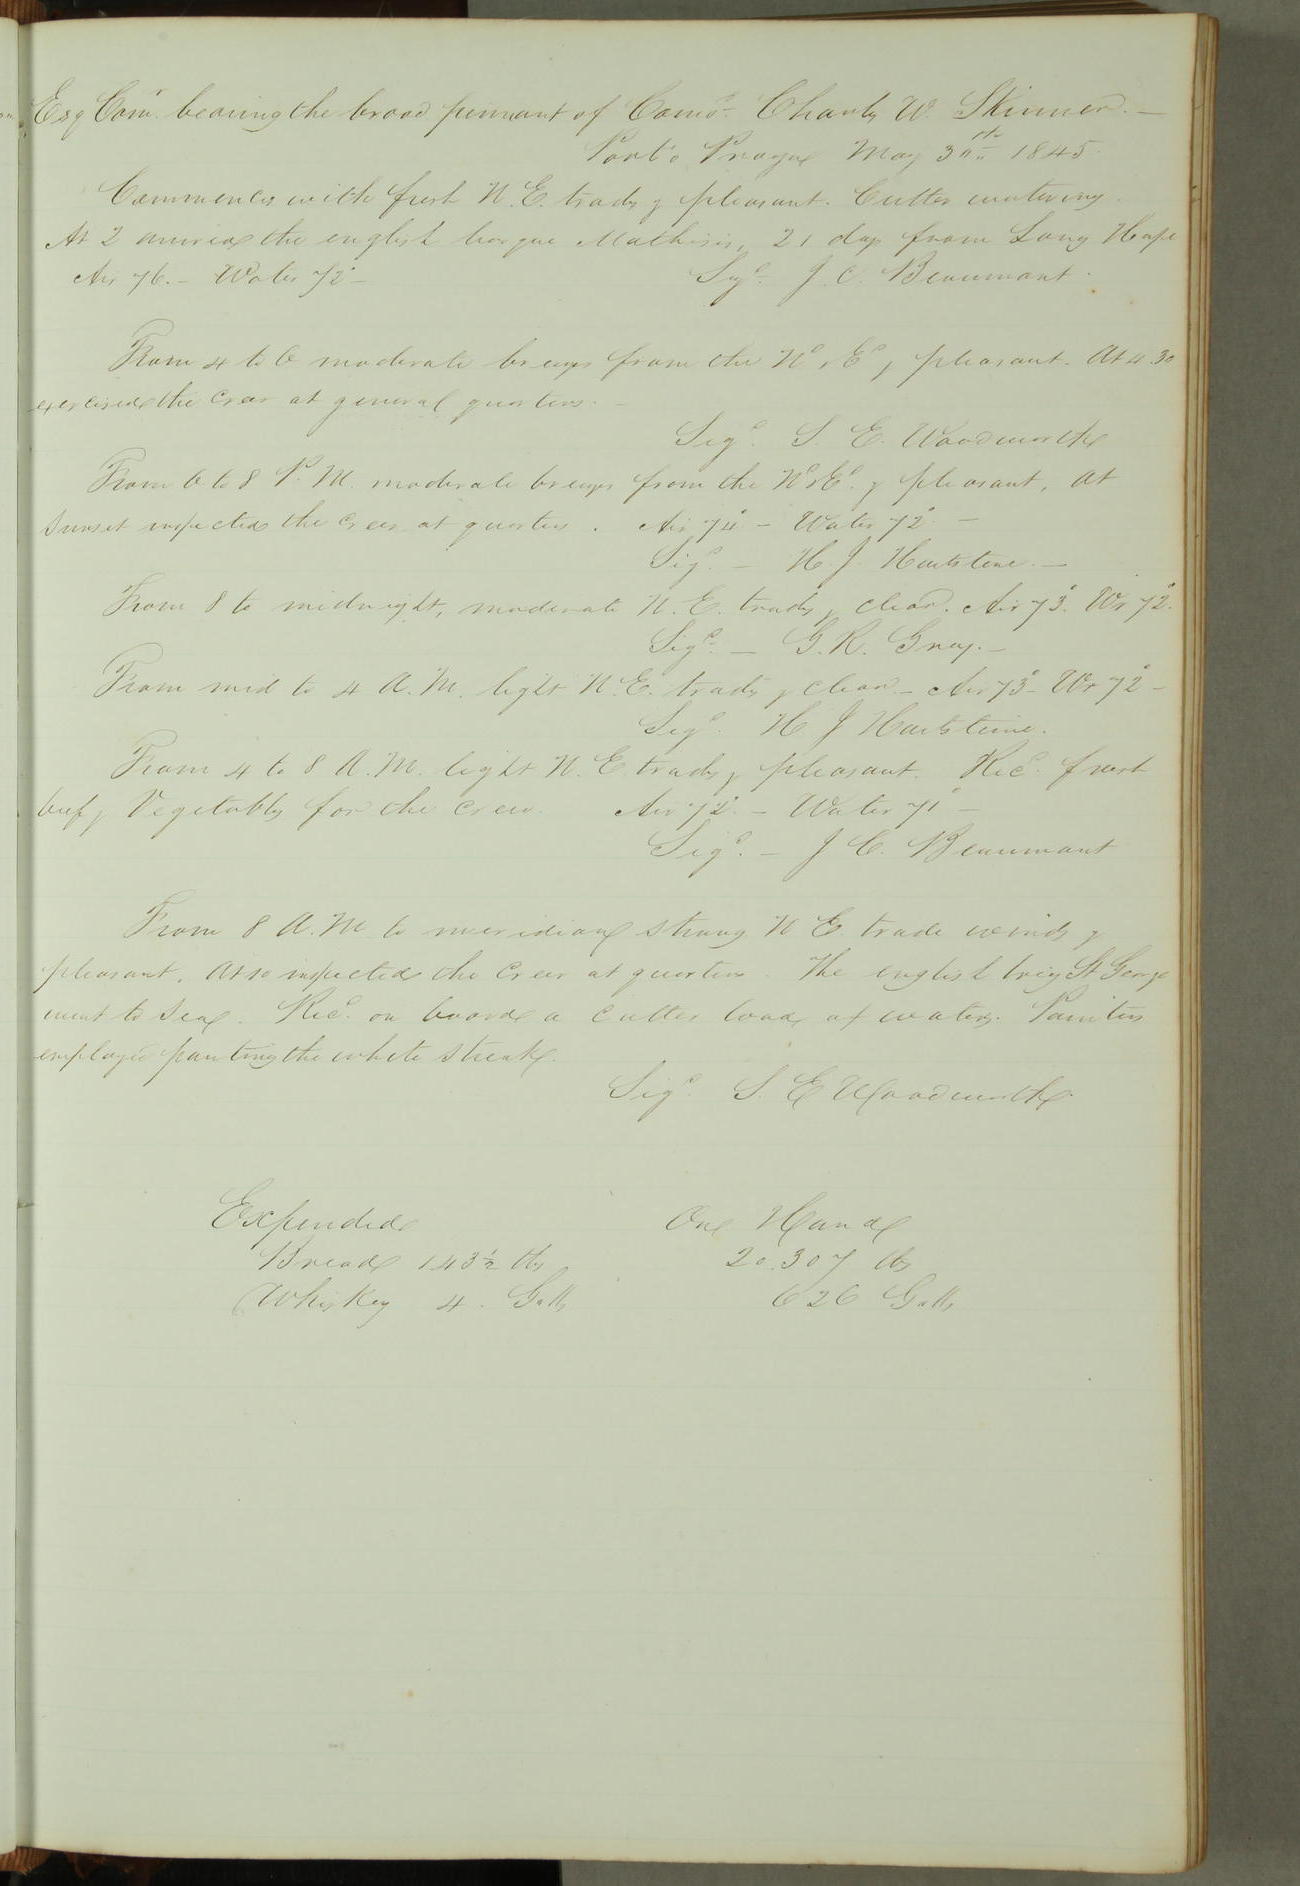 Esq Comr. bearing the broad pennant of Como. Charles W. Skinner. —
Porto Praya May 3rd 1845.
Commences with fresh N.E. trades & pleasant. Cutter watering.
At 2 arrived the english barque Mathisis, 21 days from Long Hope
Air 76. — Water 72° —
Sigd. J. C. Beaumont.
From 4 to 6 moderate breezes from the Nd & Ed & pleasant. At 4.30
exercised the crew at general quarters. —
Sigd. S. E. Woodworth
From 6 to 8 P.M. moderate breezes from the Nd & Ed. & pleasant, At
sunset inspected the crew at quarters. Air 74° — Water 72° —
Sigd. — H. J. Hartstene. —
From 8 to midnight, moderate N.E. trades & clear. Air 73°. Wr 72°.
Sigd. — G. R. Gray. —
From mid to 4 A.M. light N.E. trades & clear — Air 73° — Wr 72° —
Sigd. H J Hartstene.
From 4 to 8 A.M. light N.E trades & pleasant. Recd. fresh
beef & Vegetables for the crew. Air 72° — Water 71° —
Sigd. — J C. Beaumont
From 8 A.M to meridian strong N E. trade winds &
pleasant. At 10 inspected the crew at quarters. The english brig St George
went to sea. Recd. on board a cutter load of water. Painters
employed painting the white streak.
Sigd. S. E Woodworth.
Expended On Hand
Bread 143½ lbs 20.307 lbs
Whiskey 4. Galls 626 Galls